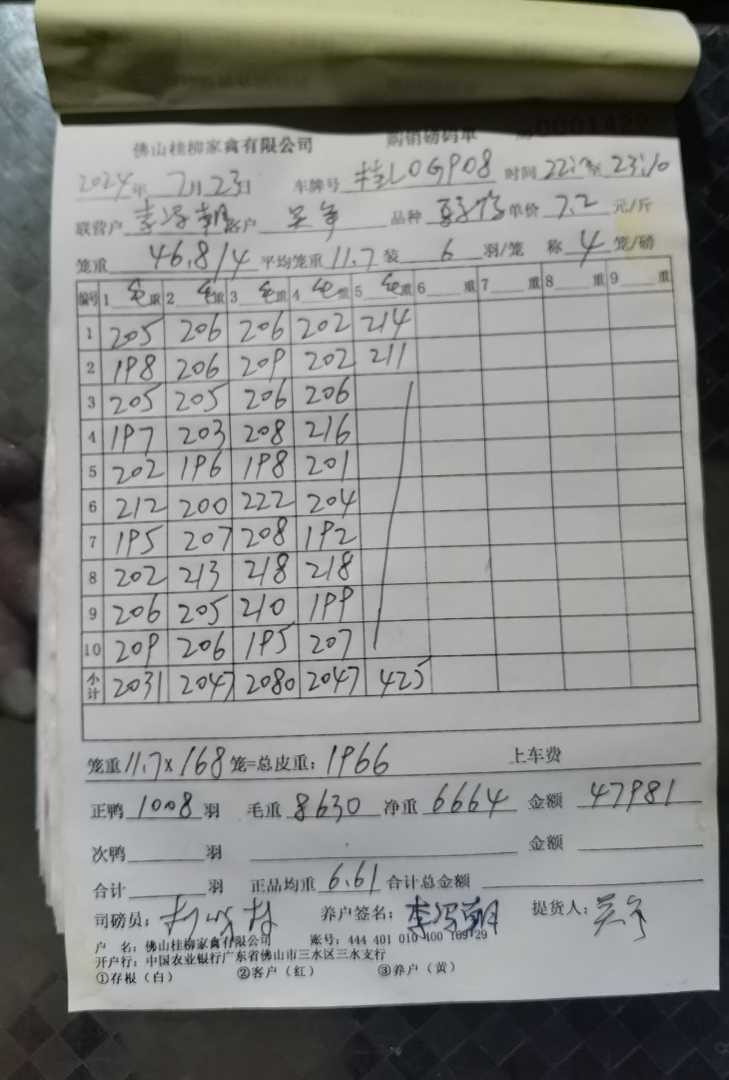 佛山桂柳家禽有限公司 购销磅码单 0001422
2024年 7月23日 车牌号 桂L0GP08 时间 至 23:10
联营户 李 朝 客户 吴 品种 单价 7.2 元/斤
笼重 46.8/4 平均笼重 11.7 装 6 羽/笼 称 4 笼/磅
编号 1 毛重 2 毛重 3 毛重 4 毛重 5 毛重 6 重 7 重 8 重 9 重
1 205 206 206 202 214
2 198 206 209 202 211
3 205 205 206 206
4 197 203 208 216
5 202 196 198 201
6 212 200 222 204
7 195 207 208 192
8 202 213 218 218
9 206 205 210 199
10 209 206 195 207
小计 2031 2047 2080 2047 425
笼重 11.7×168 笼=总皮重: 1966 上车费
正鸭 1008 羽 毛重 8630 净重 6664 金额 47981
次鸭 羽 金额
合计 羽 正品均重 6.61 合计总金额
司磅员: 养户签名: 李 朝 提货人: 吴
户 名: 佛山桂柳家禽有限公司 账号: 444 401 010 400 169 29
开户行: 中国农业银行广东省佛山市三水区三水支行
①存根(白) ②客户(红) ③养户(黄)